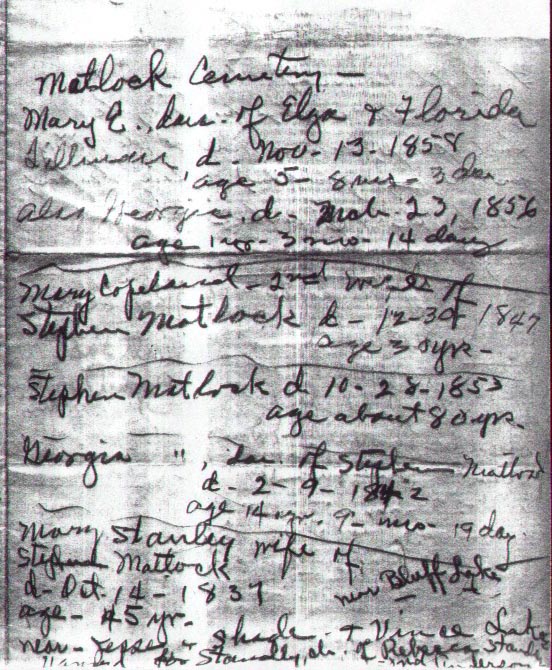 Matlock Cemetery —
Mary E., dau. of Elza & Florida
Tillman d. Nov - 13 - 1858
age 5 - 8 mos - 3 da
also Georgia, d. Mch. 23, 1856
age 1 yr - 3 mo - 14 days
Mary Copeland - 2nd wife of
Stephen Matlock d - 12-30 1847
age 35 yrs -
Stephen Matlock d 10 - 28 - 1853
age about 80 yrs.
Georgia ", dau of Stephen Matlock
d - 2 - 9 - 1842
age 14 yr. 9 - mos - 19 day.
Mary Stanley wife of
Stephen Matlock
d - Oct. 14 - 1837
near Bluff
age - 45 yr -
near - & Vince
of Rebecca